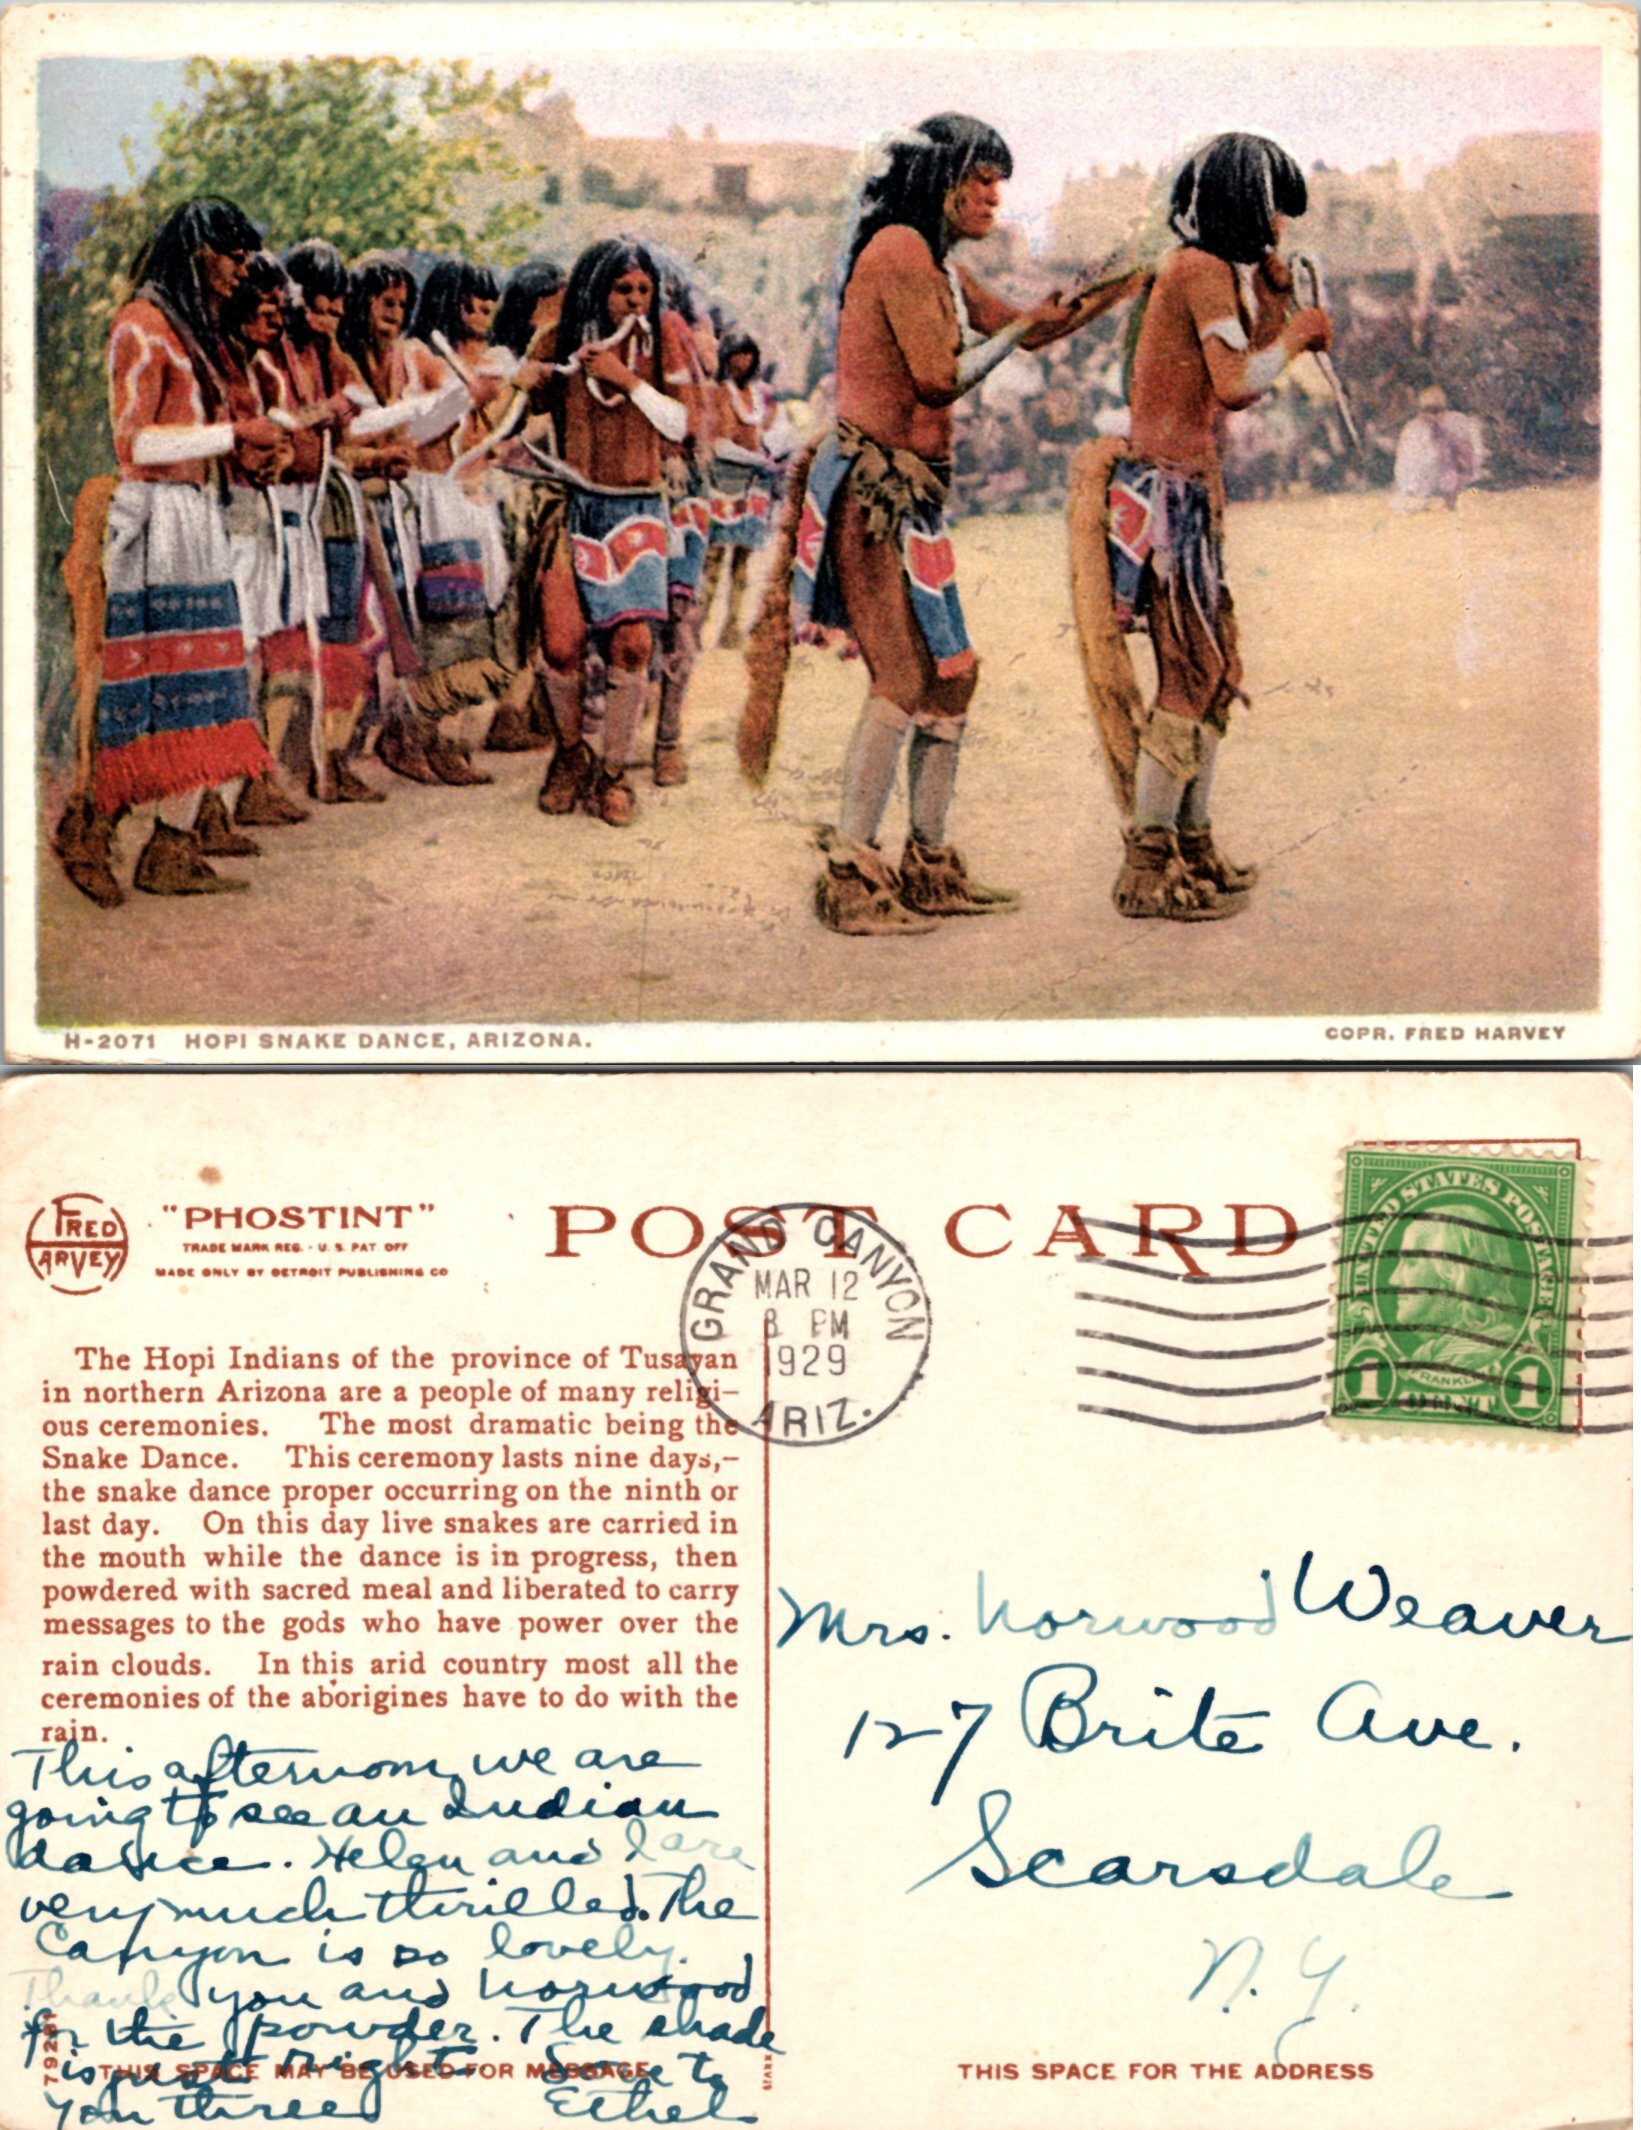 H-2071 HOPI SNAKE DANCE, ARIZONA.
COPR. FRED HARVEY
FRED HARVEY
"PHOSTINT"
TRADE MARK REG. - U. S. PAT OFF
MADE ONLY BY DETROIT PUBLISHING CO
POST CARD
GRAND CANYON
MAR 12
8 PM
1929
ARIZ.
UNITED STATES POSTAGE
FRANKLIN
1 CENT 1
The Hopi Indians of the province of Tusayan
in northern Arizona are a people of many religi-
ous ceremonies. The most dramatic being the
Snake Dance. This ceremony lasts nine days,-
the snake dance proper occurring on the ninth or
last day. On this day live snakes are carried in
the mouth while the dance is in progress, then
powdered with sacred meal and liberated to carry
messages to the gods who have power over the
rain clouds. In this arid country most all the
ceremonies of the aborigines have to do with the
rain.
This afternoon we are
going to see an Indian
dance. Helen and I are
very much thrilled. The
Canyon is so lovely.
Thank you and Norwood
for the powder. The shade
is just right. Love to
you three Ethel
79281
THIS SPACE MAY BE USED FOR MESSAGE
Mrs. Norwood Weaver
127 Brite Ave.
Scarsdale
N. Y.
THIS SPACE FOR THE ADDRESS